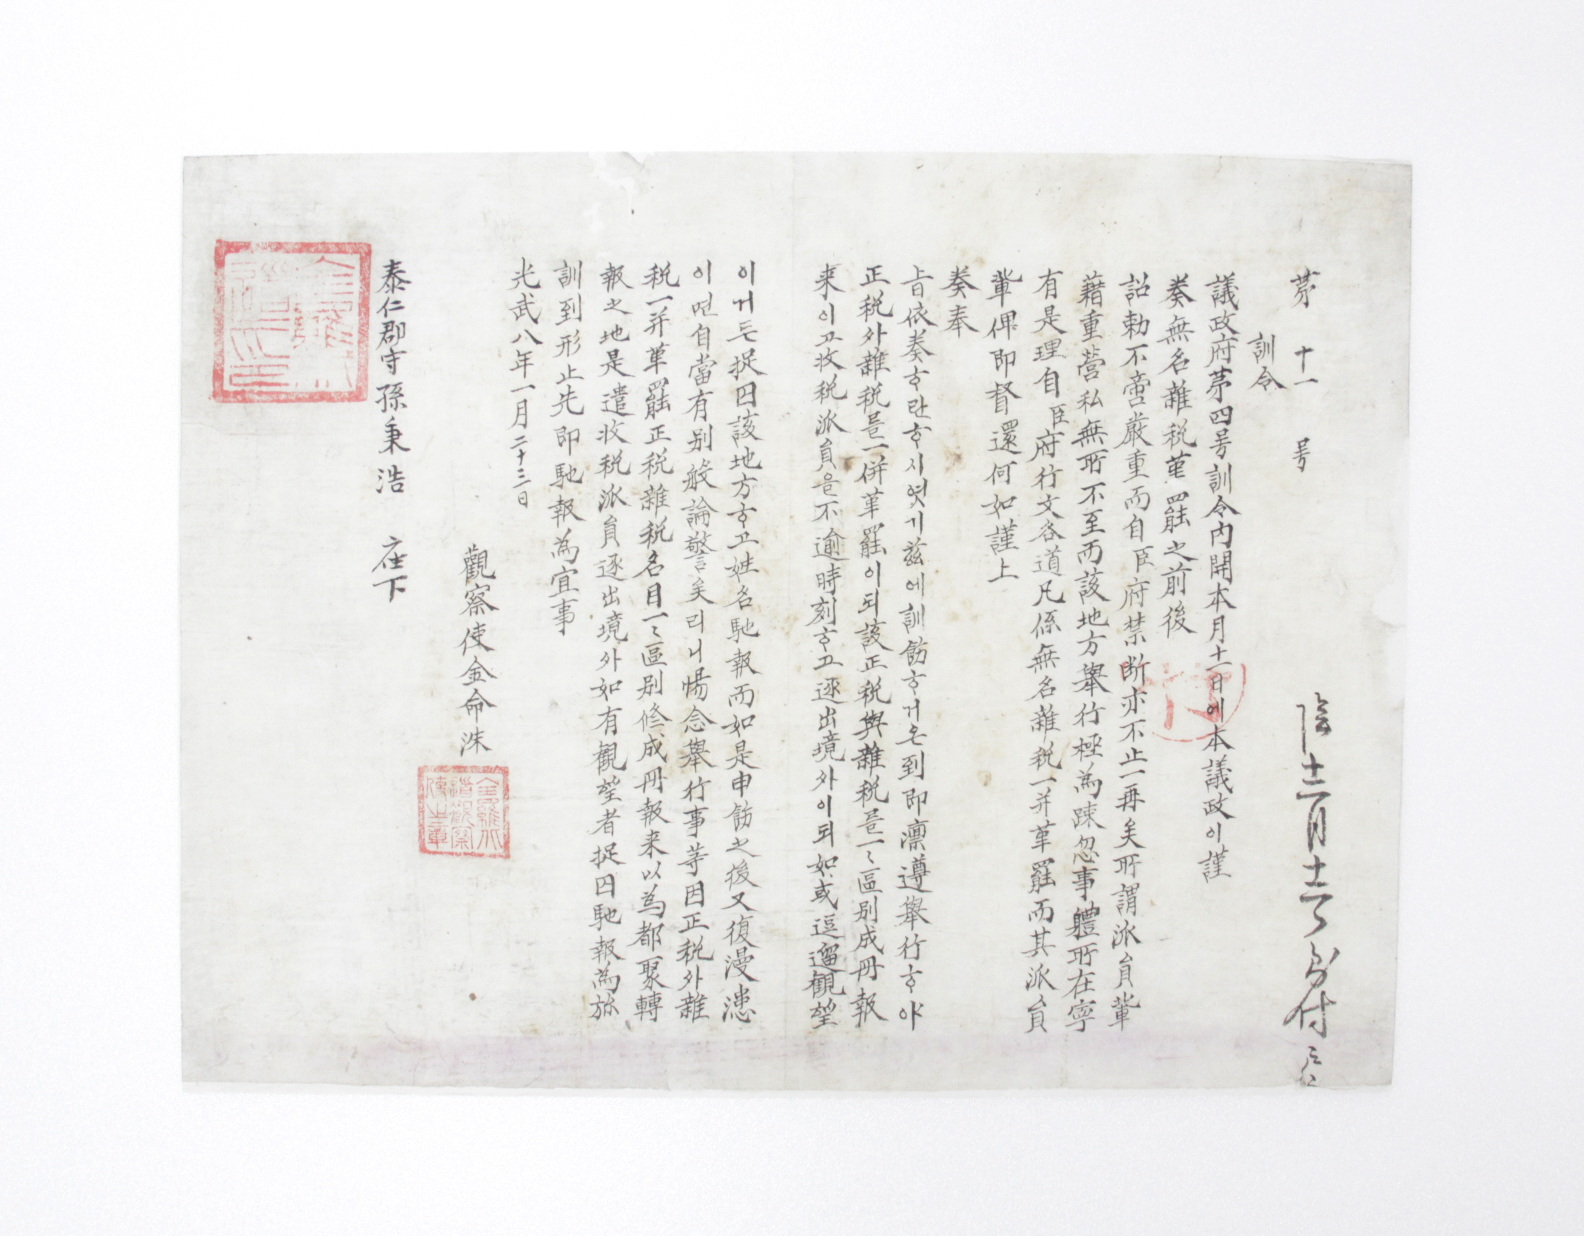 茅十一号
訓令
議政府茅四号訓令內開本月十一日에本議政이謹
奏無名雜税革罷之前後
詔勅不啻嚴重而自臣府禁断亦不止一再矣所謂派員輩
藉重營私無所不至而該地方擧行極為踈忽事軆所在寧
有是理自臣府行文各道凡係無名雜税一并革罷而其派員
輩俾即督還何如謹上
奏奉
旨依奏ᄒᆞ란ᄒᆞ시엿기玆에訓飭ᄒᆞ거온到即凛遵擧行ᄒᆞ야
正税外雜税믈一併革罷이되該正税與雜税믈一〻區别成冊報
来이고收税派員을不逾時刻ᄒᆞ고逐出境外이되如或逗遛觀望
이거든捉囚該地方ᄒᆞ고姓名馳報而如是申飭之後又復漫漶
이면自當有别般論警矣리니惕念擧行事等因正税外雜
税一并革罷正税雜税名目一〻區别修成冊報来以為都聚轉
報之地是遣收税派員逐出境外如有觀望者捉囚馳報為旀
訓到形止先即馳報為宜事
光武八年一月二十三日
觀察使金命洙
泰仁郡守孫秉浩 座下
陰十二月十二
全羅北道觀察使之章